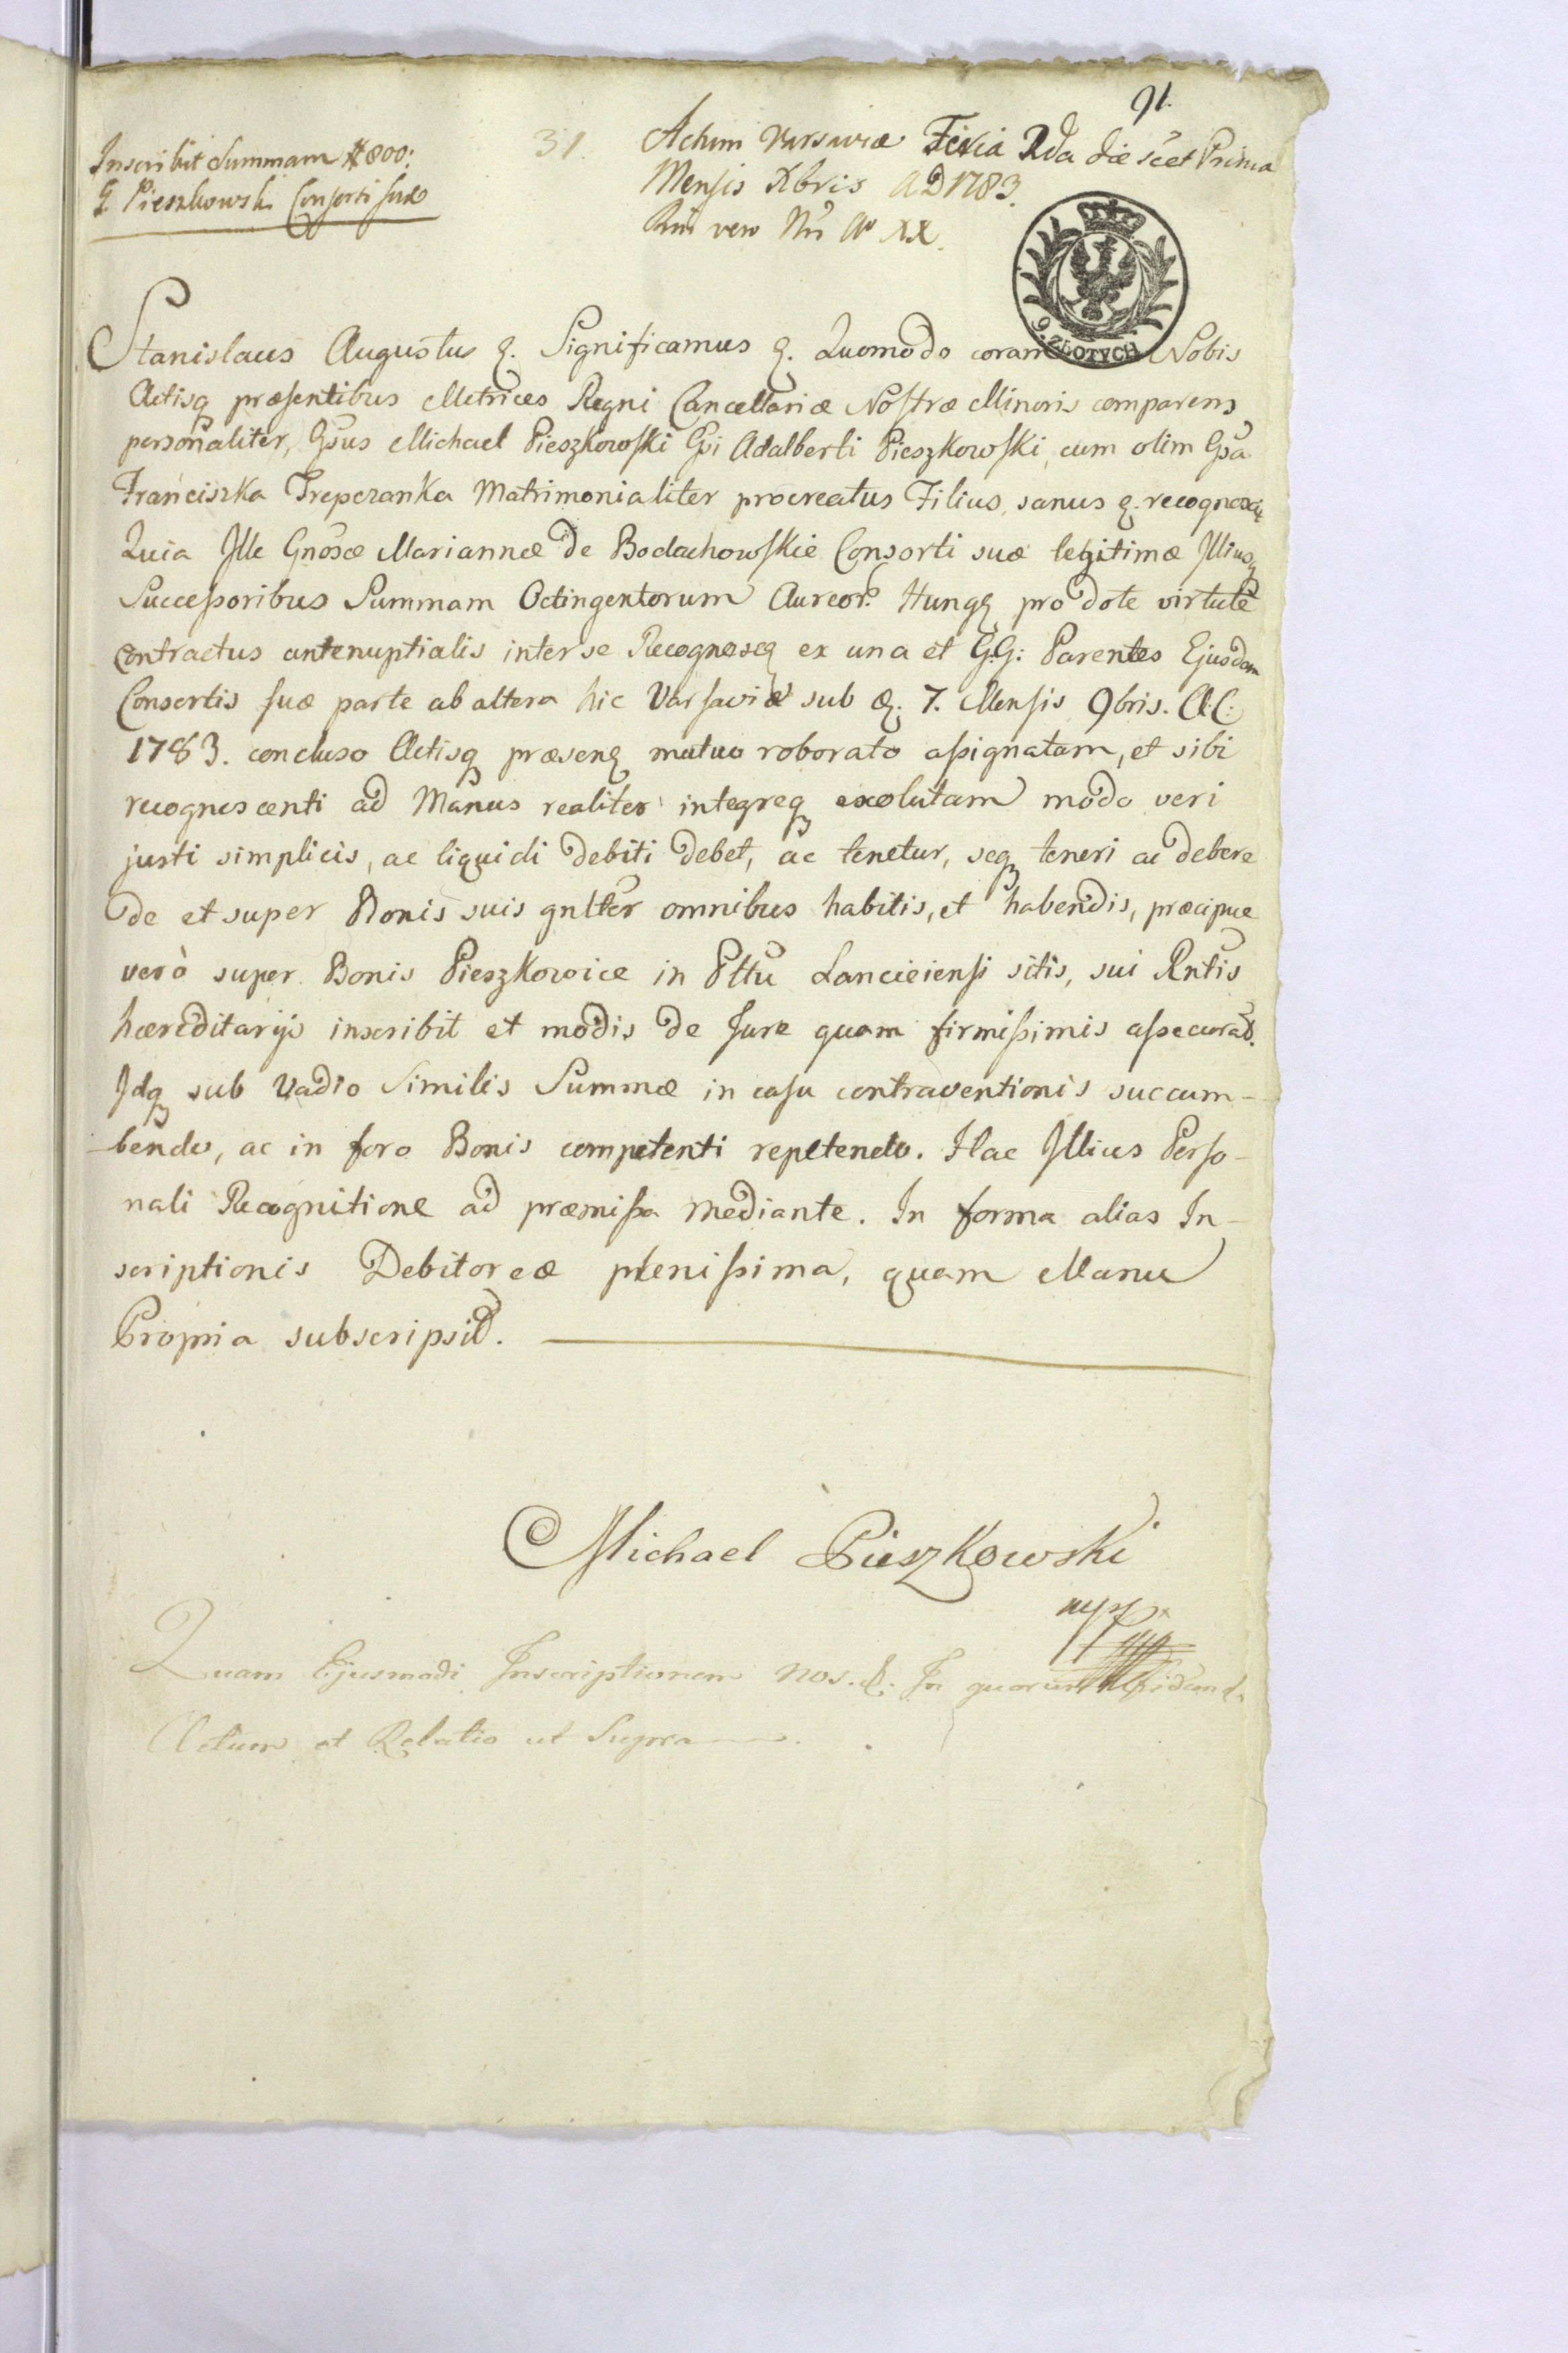 91.
Inscribit Summam # 800:
G. Pieszkowski Consorti suæ
31.
Actum Varsaviæ Feria 2da die scet Prima
Mensis Xbris AD 1783.
Rni vero Nri Aº XX.
9. ZŁOTYCH
Stanislaus Augustus &. Significamus &. Quomodo coram Nobis
Actisq præsentibus Metrices Regni Cancellariæ Nostræ Minoris comparens
personaliter, Gsus Michael Pieszkowski Gsi Adalberti Pieszkowski, cum olim Gsa
Franciszka Trepczanka Matrimonialiter procreatus Filius, sanus &. recognovit
Quia Ille Gnosæ Mariannæ de Bodachowskie Consorti suæ legitimæ Illiusq
Successoribus Summam Octingentorum Aureor. Hung pro dote virtute
Contractus antenuptialis inter se Recognoscq ex una et G.G: Parentes Ejusdem
Consortis suæ parte ab altera hic Varsaviæ sub &. 7. Mensis 9bris. A.C:
1783. concluso Actisq præsenq mutuo roborato assignatam, et sibi
recognoscenti ad Manus realiter integreq exolutam modo veri
justi simplicis, ac liquidi Debiti Debet, ac tenetur, seq teneri ac debere
De et super Bonis suis gnlter omnibus habitis, et habendis, præcipue
verò super Bonis Pieszkowice in Pttu Lanciciensi sitis, sui Rntis
hæreditarijs inscribit et modis de Jure quam firmissimis assecurat.
Idq sub Vadio Similis Summæ in casu contraventionis succum-
-bendo, ac in foro Bonis competenti repetendo. Hac Illius Perso-
nali Recognitione ad præmissa mediante. In forma alias In-
scriptionis Debitoreæ plenissima, quam Manu
Propria subscripsit.
Michael Pieszkowski
mpp
Quam Ejusmodi Inscriptionem Nos. &. In quorum fidem &.
Actum et Relatio ut Supra